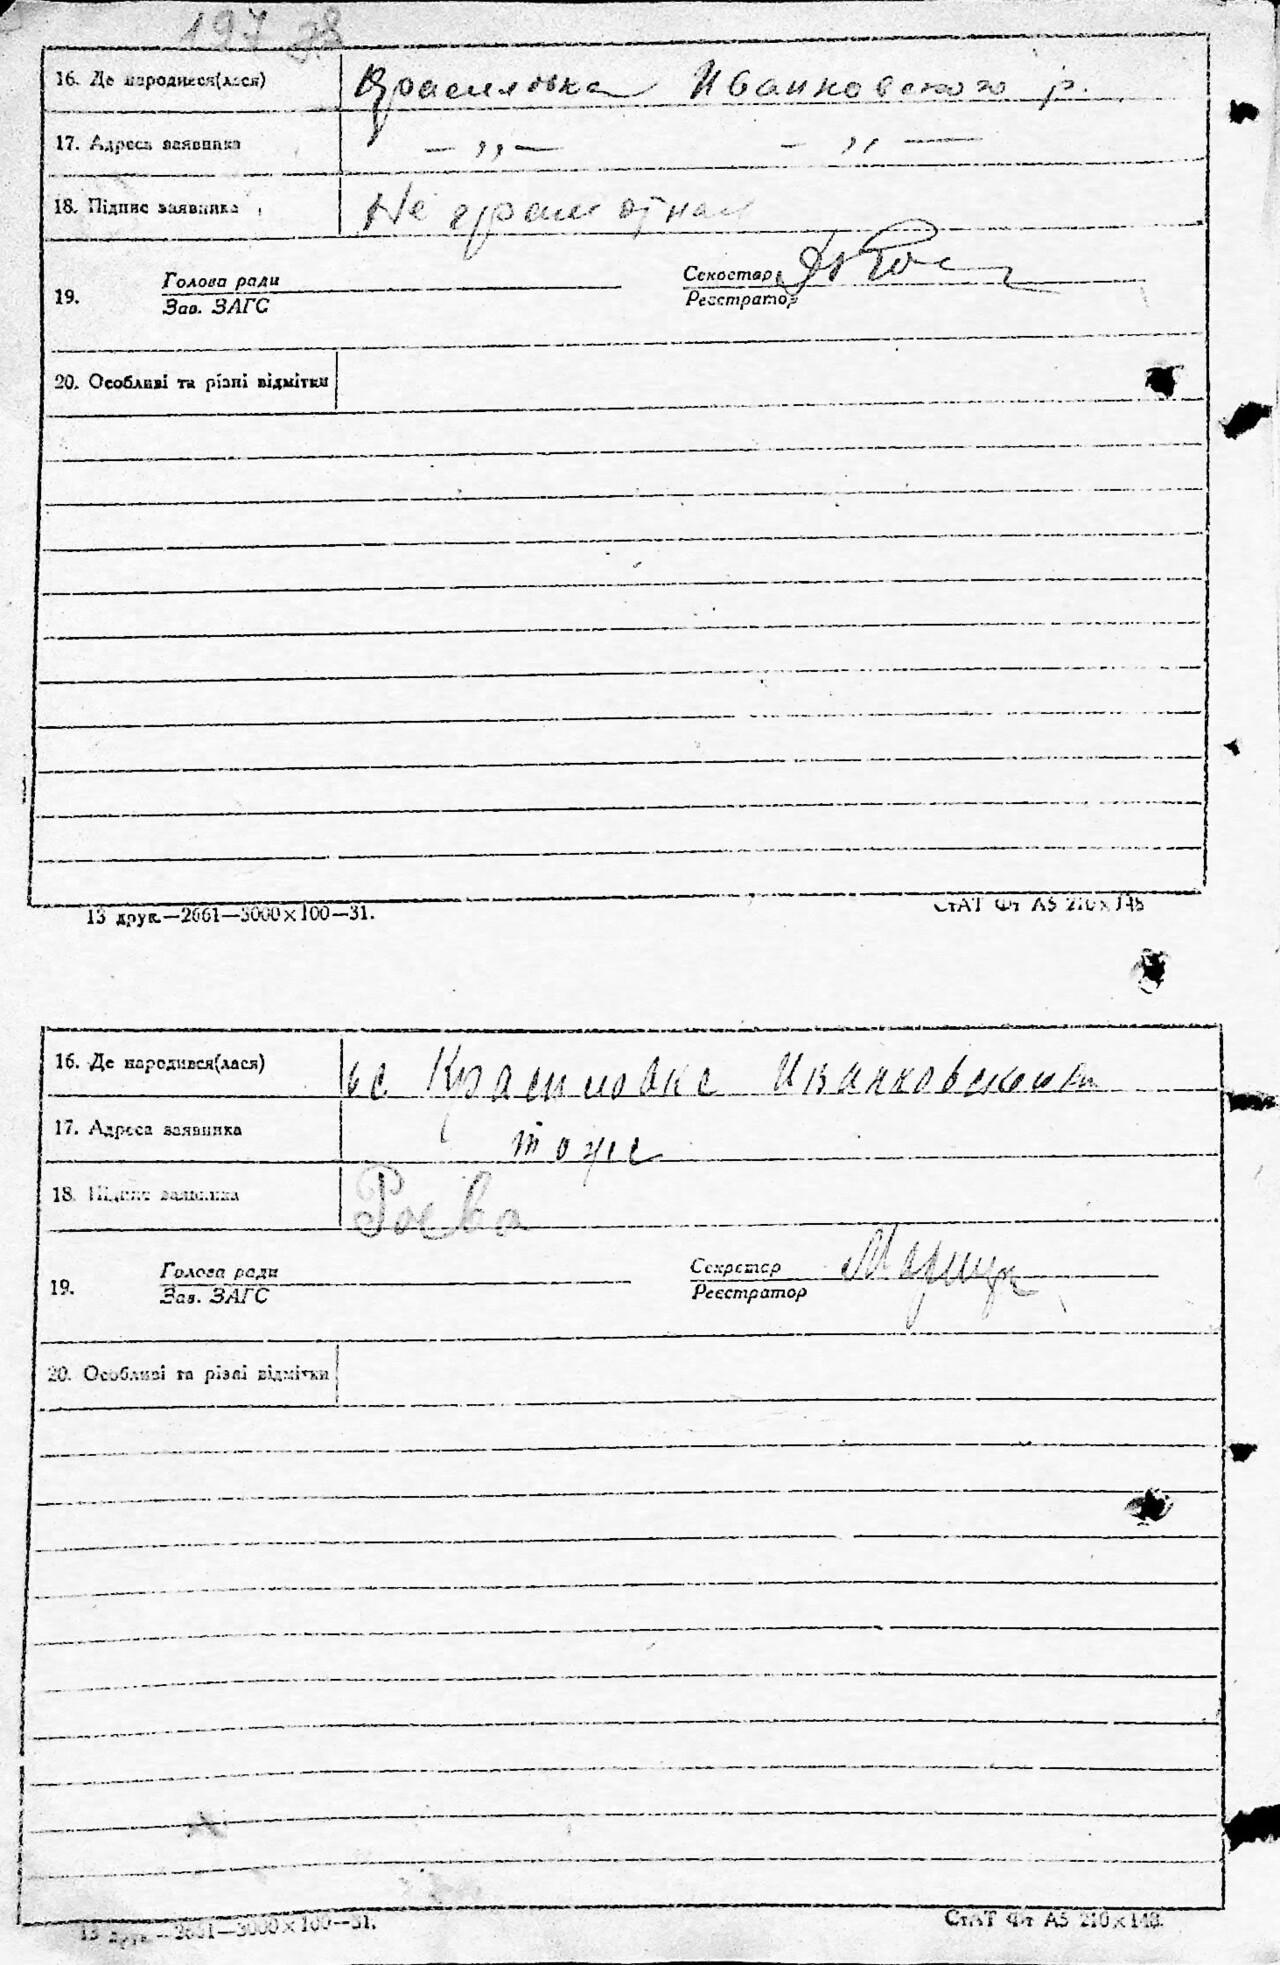 197 зв
16. Де народився(лася) Красиловка Иванковского р.
17. Адреса заявника — „ — — „ —
18. Підпис заявника Не грамотная
Голова ради Секретар
19. Зав. ЗАГС Реєстратор
20. Особливі та різні відмітки
13 друк.—2661—3000×100—31. СтАТ Фт А5 210×148
16. Де народився(лася) в с Красиловке Иванковского
17. Адреса заявника тоже
18. Підпис заявника Роева
Голова ради Секретар
19. Зав. ЗАГС Реєстратор
20. Особливі та різні відмітки
13 друк.—2661—3000×100—31. СтАТ Фт А5 210×148.